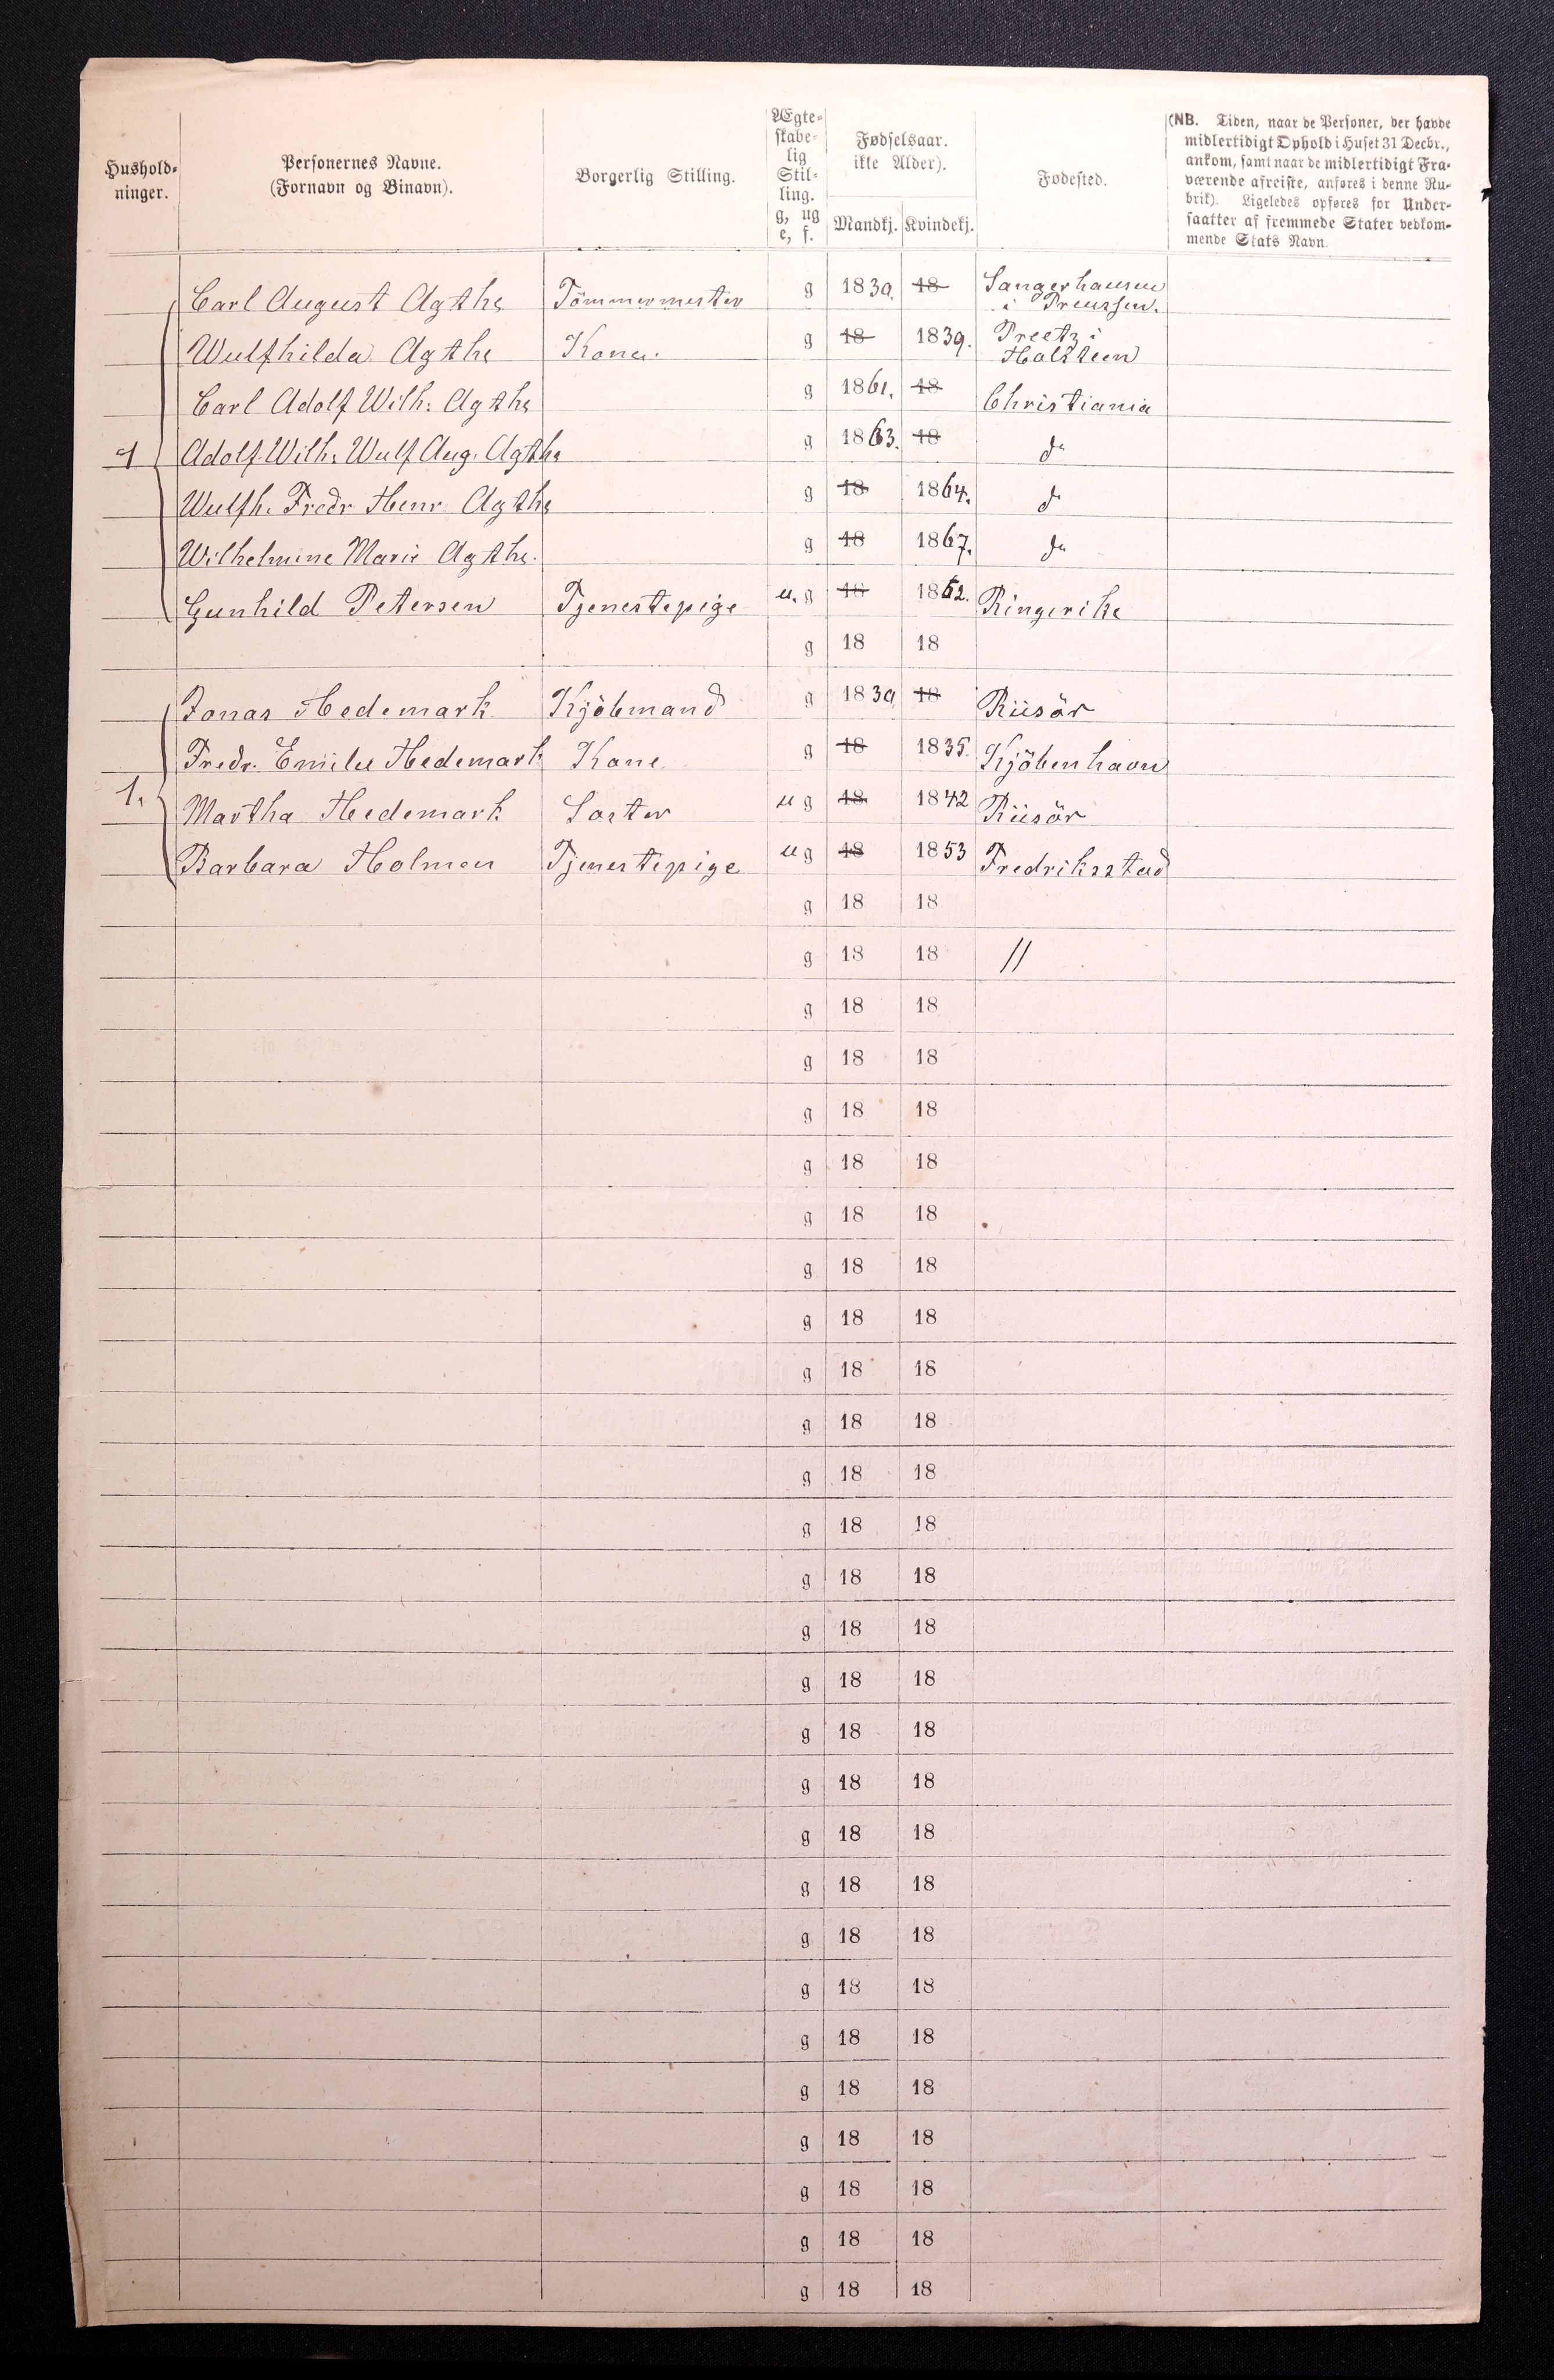 Hushold-
ninger.
Personernes Navne.
(Fornavn og Binavn).
Borgerlig Stilling.
Ægte-
skabe-
lig
Stil-
ling.
g, ug
e, f.
Fødselsaar.
ikke Alder).
Mandkj. Kvindekj.
Fødested.
(NB. Tiden, naar de Personer, der havde
midlertidigt Ophold i Huset 31 Decbr.,
ankom, samt naar de midlertidigt Fra-
værende afreiste, anføres i denne Ru-
brik). Ligeledes opføres for Under-
saatter af fremmede Stater vedkom-
mende Stats Navn.
Carl August Agthe Tömmermester g 1839. 18 Sangerhausen
i Preussen.
Wulfhilda Agthe Kone. g 18 1839. Preetz i
Holsteen
Carl Adolf Wilh: Agthe g 1861. 18 Christiania
1 Adolf Wilh: Wulf Aug. Agthe g 1863. 18 do
Wulfh. Fredr Henr Agthe g 18 1864. do
Wilhelmine Marie Agthe. g 18 1867. do
Gunhild Petersen Tjenestepige u. g 18 1852. Ringerike
g 18 18
Jonas Hedemark Kjöbmand g 1839 18 Riisör
Fredr. Emilie Hedemark Kone g 18 1835. Kjöbenhavn
1. Martha Hedemark Søster u g 18 1842 Riisör
Barbara Holmen Tjenestepige u g 18 1853 Fredriksstad
g 18 18
g 18 18 //
g 18 18
g 18 18
g 18 18
g 18 18
g 18 18
g 18 18
g 18 18
g 18 18
g 18 18
g 18 18
g 18 18
g 18 18
g 18 18
g 18 18
g 18 18
g 18 18
g 18 18
g 18 18
g 18 18
g 18 18
g 18 18
g 18 18
g 18 18
g 18 18
g 18 18
g 18 18